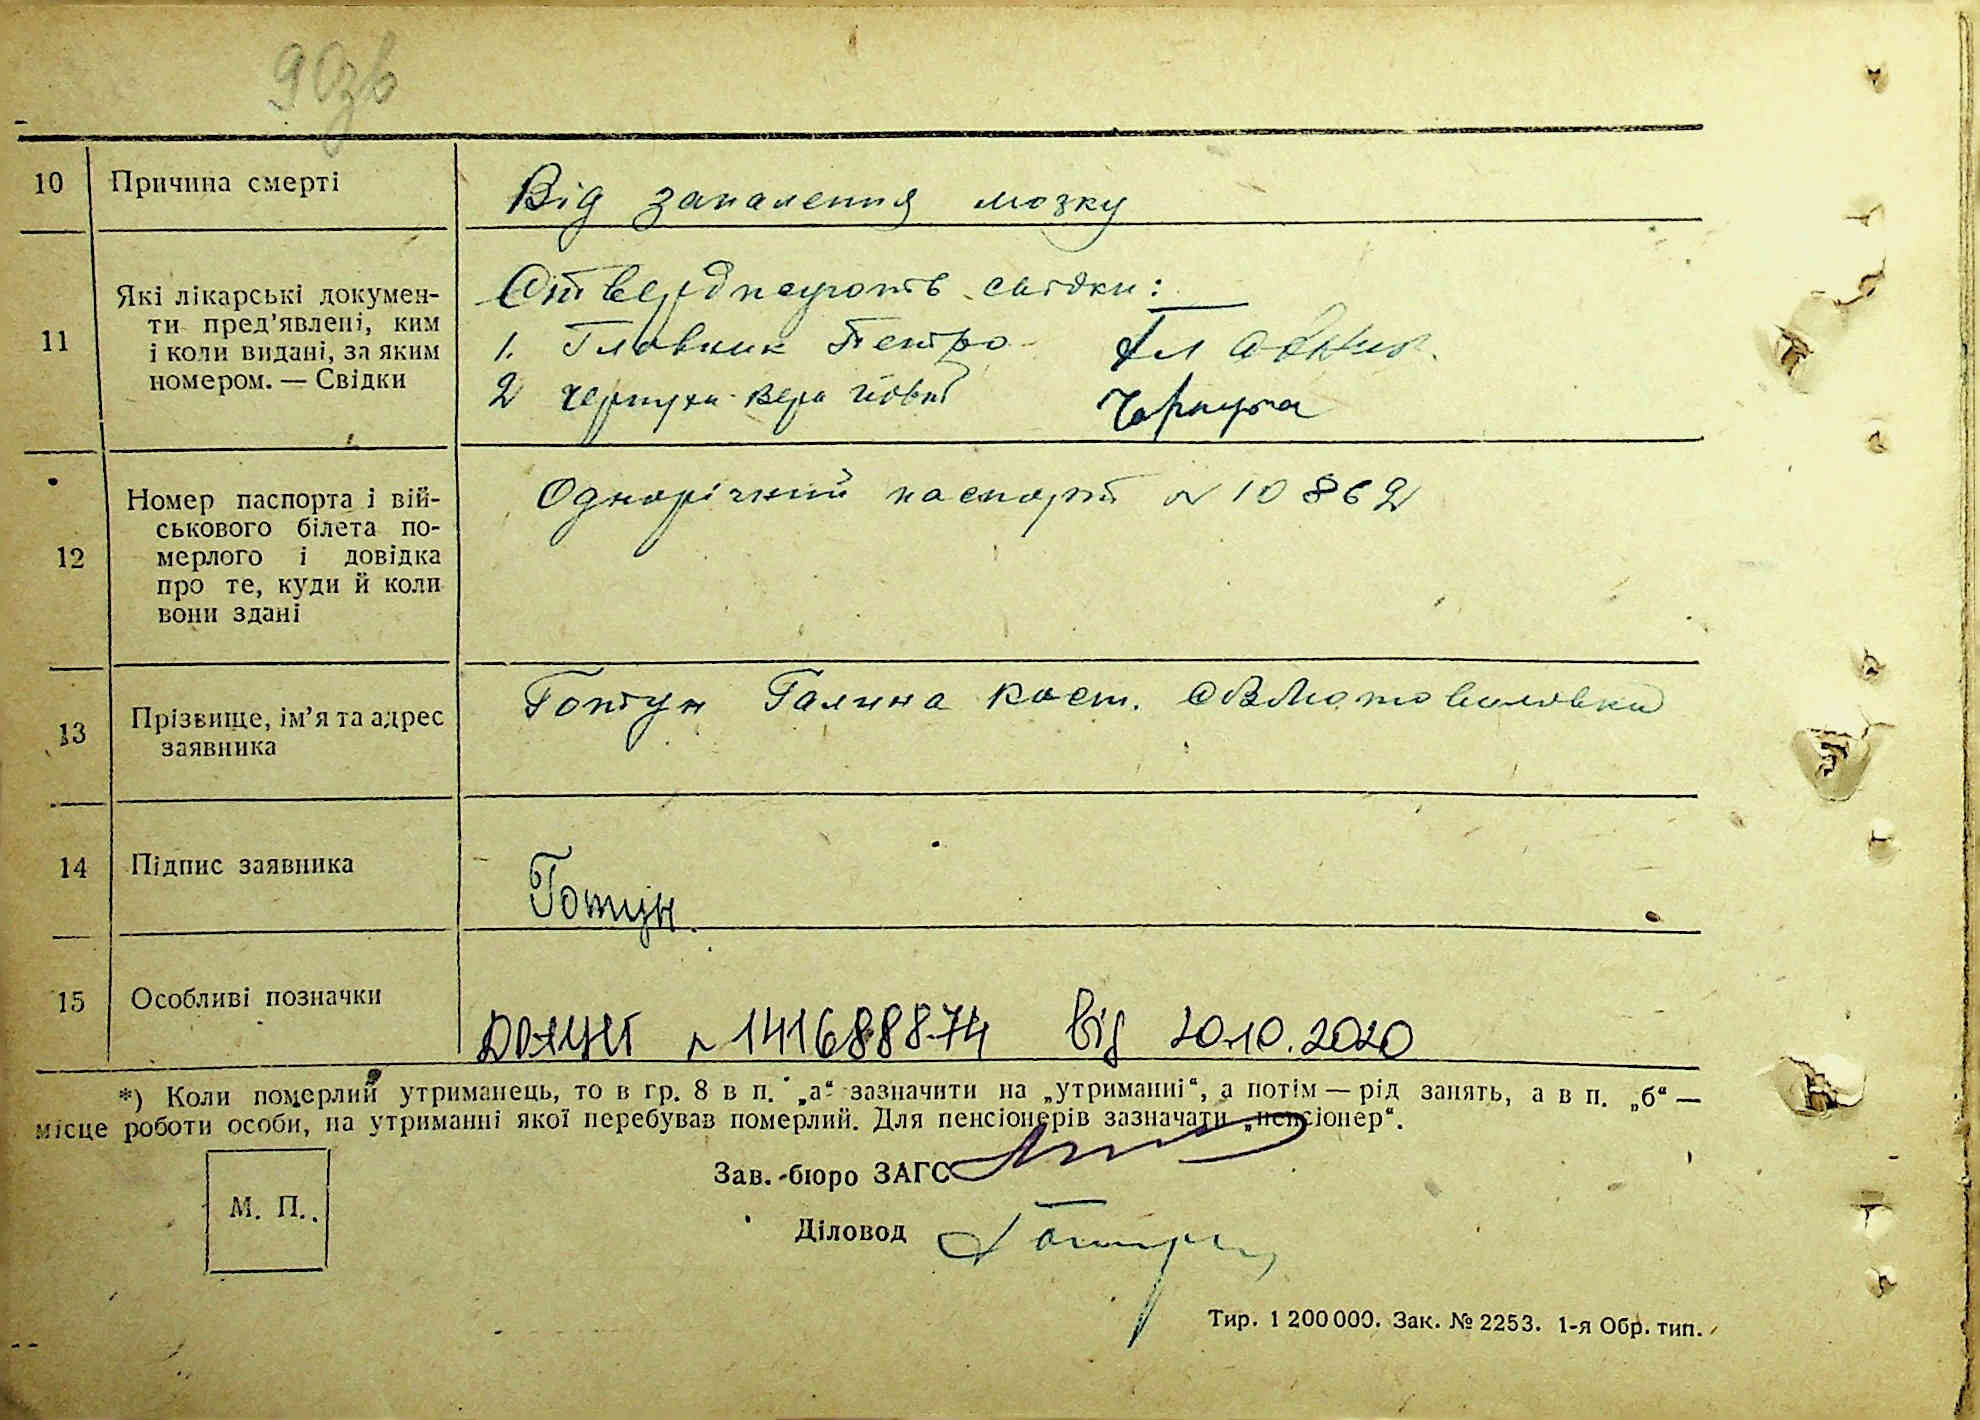 90зв
10 Причина смерті Від запалення мозку
11 Які лікарські докумен-
ти пред'явлені, ким
і коли видані, за яким
номером. — Свідки
свідки:
1. Главник Петро Главник.
2 Черпуха Вера Черпуха
12 Номер паспорта і вій-
ськового білета по-
мерлого і довідка
про те, куди й коли
вони здані
Однорічний паспорт № 10862
13 Прізвище, ім'я та адрес
заявника
Готун Галина Кост. с. В Мотовиловка
14 Підпис заявника Готун.
15 Особливі позначки
№ 141688874 від 20.10.2020
*) Коли померлий утриманець, то в гр. 8 в п. „а“ зазначити на „утриманні“, а потім — рід занять, а в п. „б“ —
місце роботи особи, на утриманні якої перебував померлий. Для пенсіонерів зазначати „пенсіонер“.
М. П.
Зав. бюро ЗАГС
Діловод
Тир. 1 200 000. Зак. № 2253. 1-я Обр. тип.